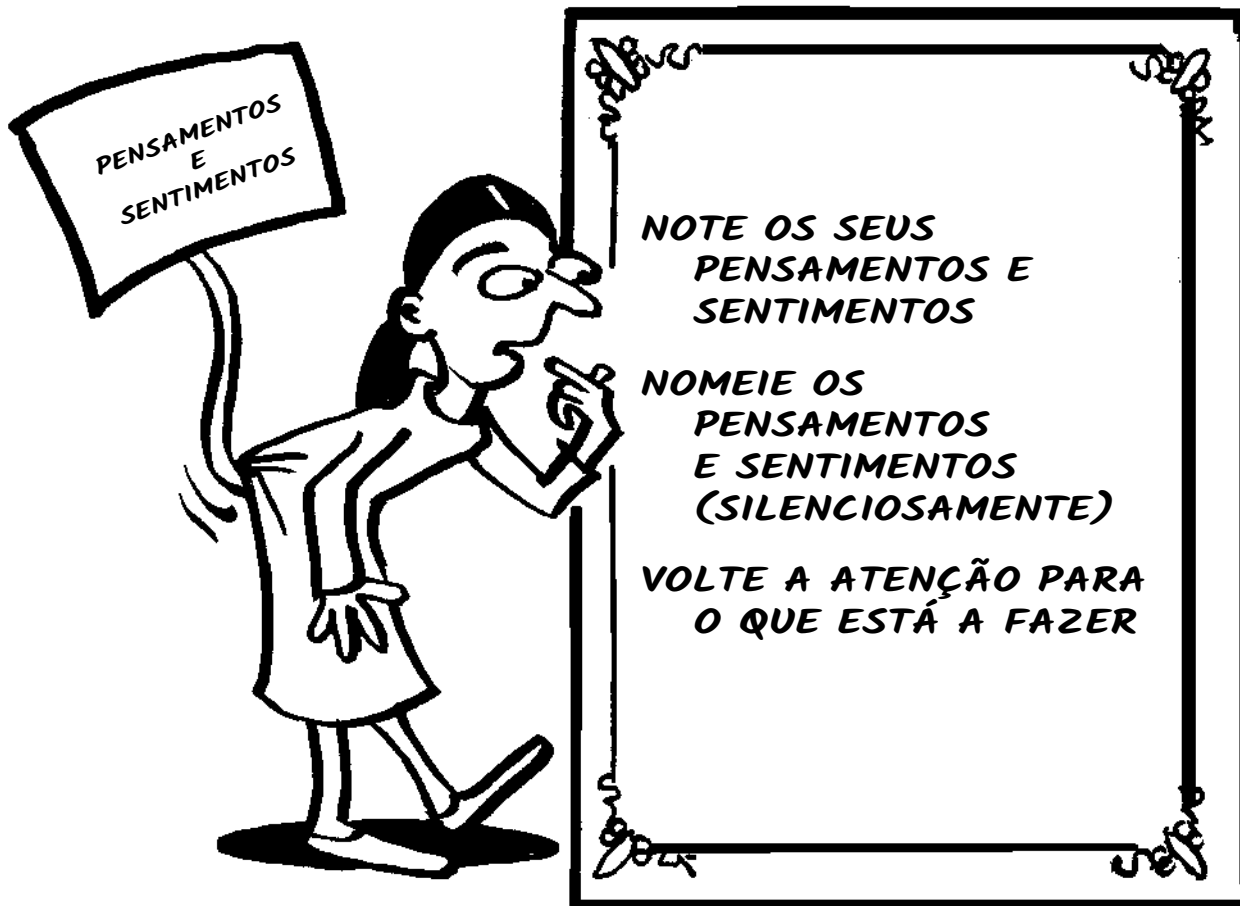 PENSAMENTOS
E
SENTIMENTOS
NOTE OS SEUS
PENSAMENTOS E
SENTIMENTOS
NOMEIE OS
PENSAMENTOS
E SENTIMENTOS
(SILENCIOSAMENTE)
VOLTE A ATENÇÃO PARA
O QUE ESTÁ A FAZER